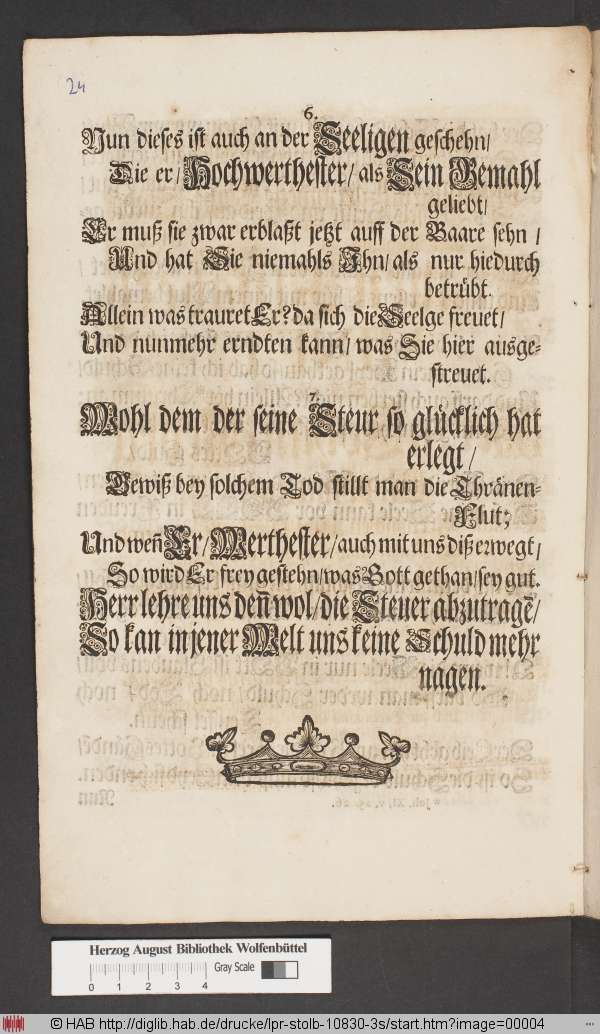 24
6.
Nun dieses ist auch an der Seeligen geschehn/
Die er/ Hochwerthester/ als Sein Gemahl
geliebt/
Er muß sie zwar erblaßt jetzt auff der Baare sehn/
Und hat Sie niemahls Ihn/ als nur hiedurch
betrübt.
Allein was trauret Er? da sich die Seelge freuet/
Und nunmehr erndten kann/ was Sie hier ausge-
streuet.
7.
Wohl dem der seine Steur so glücklich hat
erlegt/
Gewiß bey solchem Tod stillt man die Thränen-
Flut;
Und weñ Er/ Werthester/ auch mit uns diß erwegt/
So wird Er frey gestehn/ was Gott gethan/ sey gut.
Herr lehre uns deñ wol/ die Steuer abzutragẽ/
So kan in jener Welt uns keine Schuld mehr
nagen.
Herzog August Bibliothek Wolfenbüttel
0 1 2 3 4
Gray Scale
© HAB http://diglib.hab.de/drucke/lpr-stolb-10830-3s/start.htm?image=00004